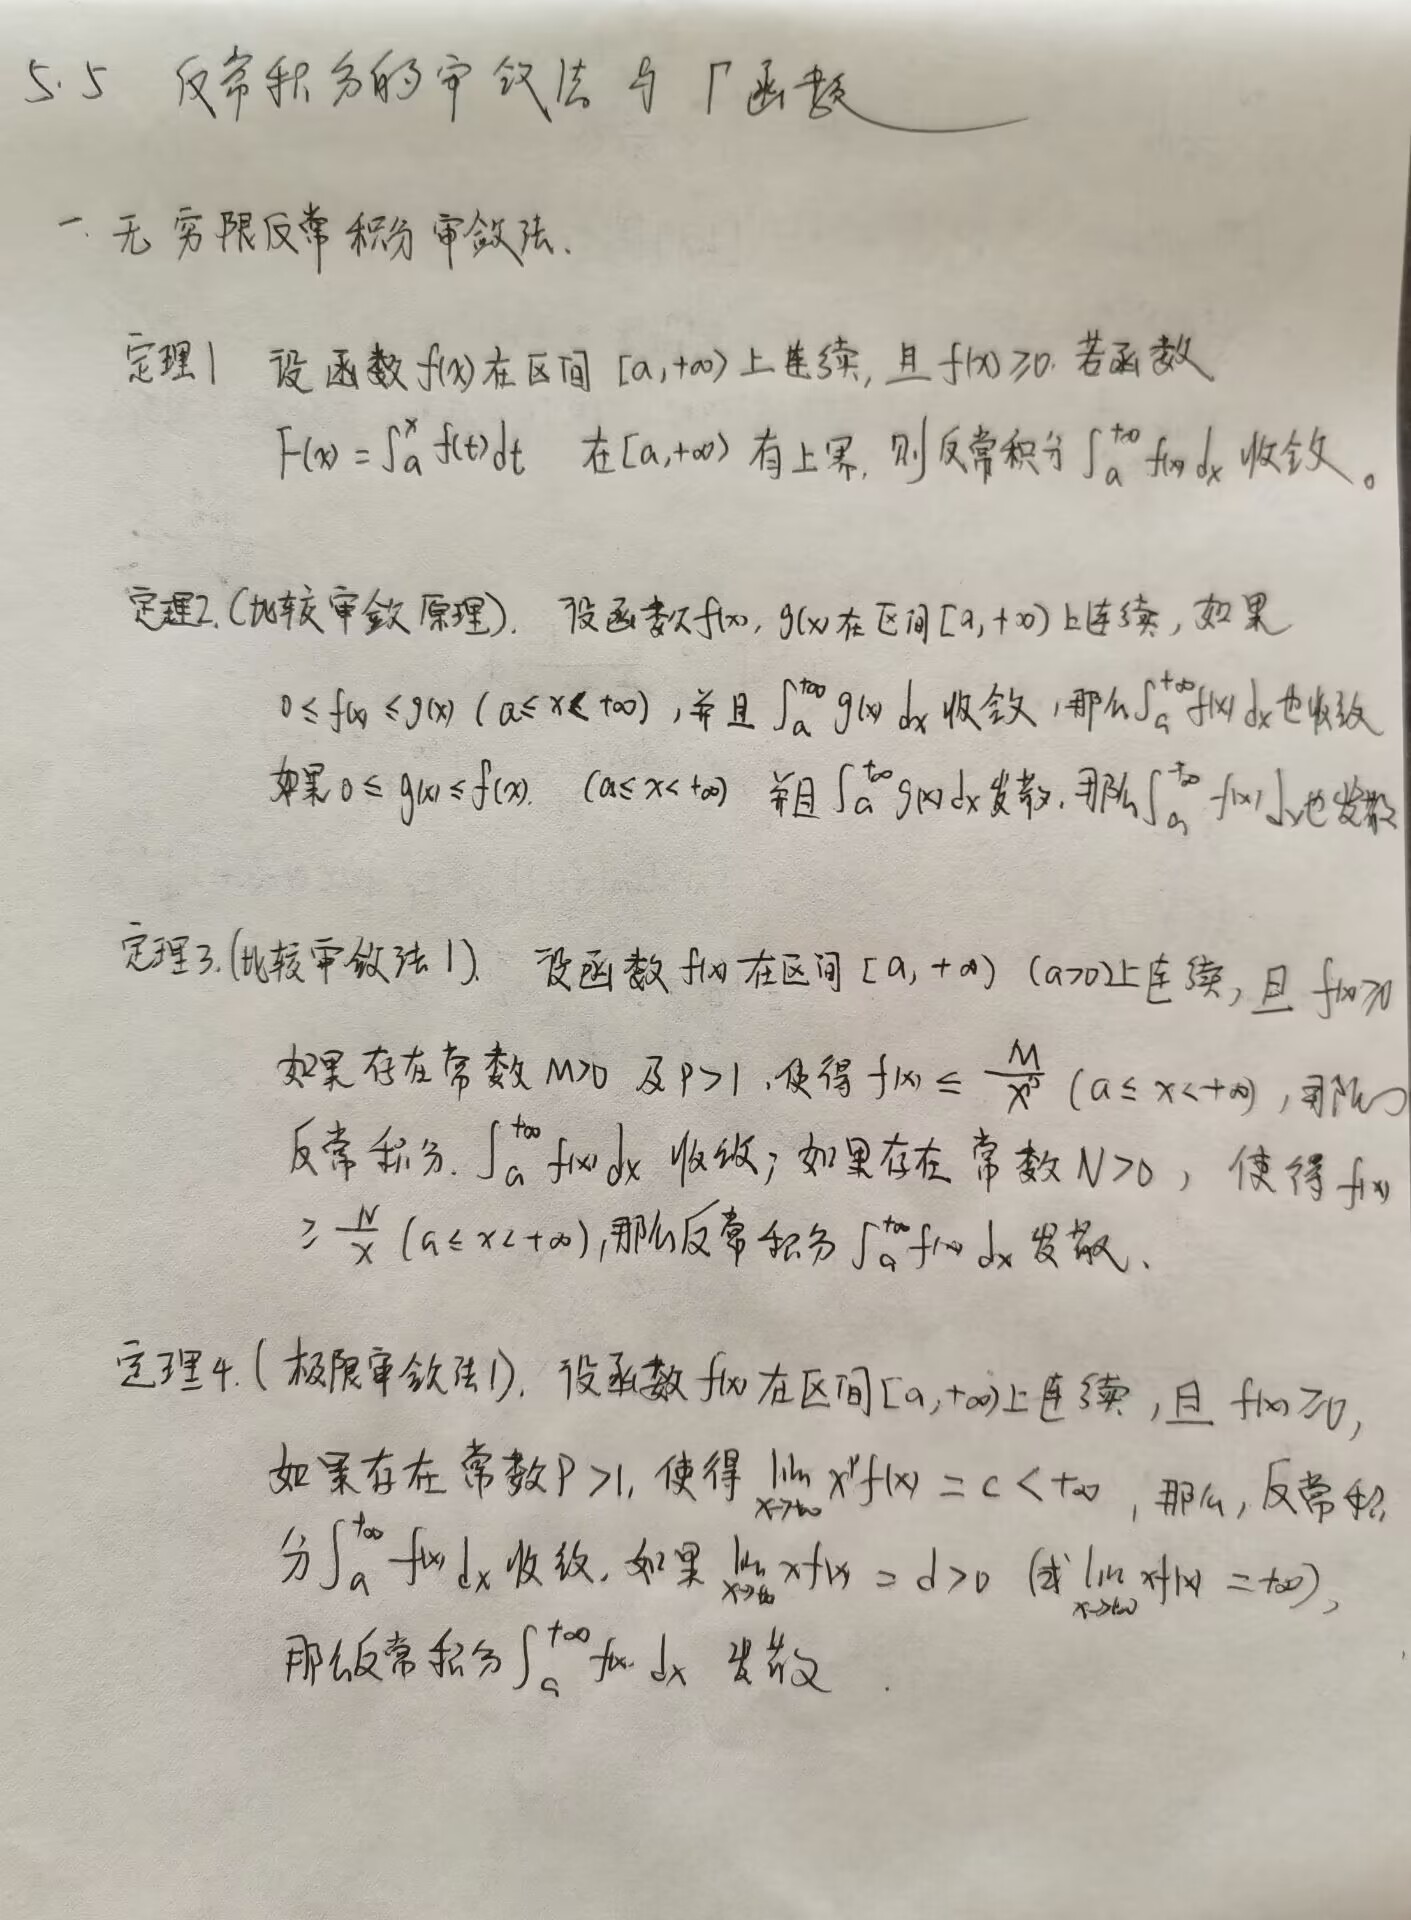 5.5 反常积分的审敛法与Γ函数
一. 无穷限反常积分审敛法.
定理1 设函数f(x)在区间[a,+∞)上连续,且f(x)≥0.若函数
F(x)=∫_a^x f(t)dt 在[a,+∞)有上界,则反常积分∫_a^{+∞} f(x)dx收敛。
定理2.(比较审敛原理). 设函数f(x),g(x)在区间[a,+∞)上连续,如果
0≤f(x)≤g(x)(a≤x<+∞),并且∫_a^{+∞} g(x)dx收敛,那么∫_a^{+∞} f(x)dx也收敛
如果0≤g(x)≤f(x).(a≤x<+∞)并且∫_a^{+∞} g(x)dx发散.那么∫_a^{+∞} f(x)dx也发散
定理3.(比较审敛法1). 设函数f(x)在区间[a,+∞)(a>0)上连续,且f(x)≥0
如果存在常数M>0及p>1,使得f(x)≤M/x^p(a≤x<+∞),那么
反常积分.∫_a^{+∞} f(x)dx收敛;如果存在常数N>0,使得f(x)
≥N/x(a≤x<+∞),那么反常积分∫_a^{+∞} f(x)dx发散.
定理4.(极限审敛法1). 设函数f(x)在区间[a,+∞)上连续,且f(x)≥0,
如果存在常数P>1,使得lim_{x→+∞} x^p f(x)=c<+∞,那么,反常积
分∫_a^{+∞} f(x)dx收敛.如果lim_{x→+∞} xf(x)=d>0(或lim_{x→+∞} xf(x)=+∞),
那么反常积分∫_a^{+∞} f(x)dx发散.